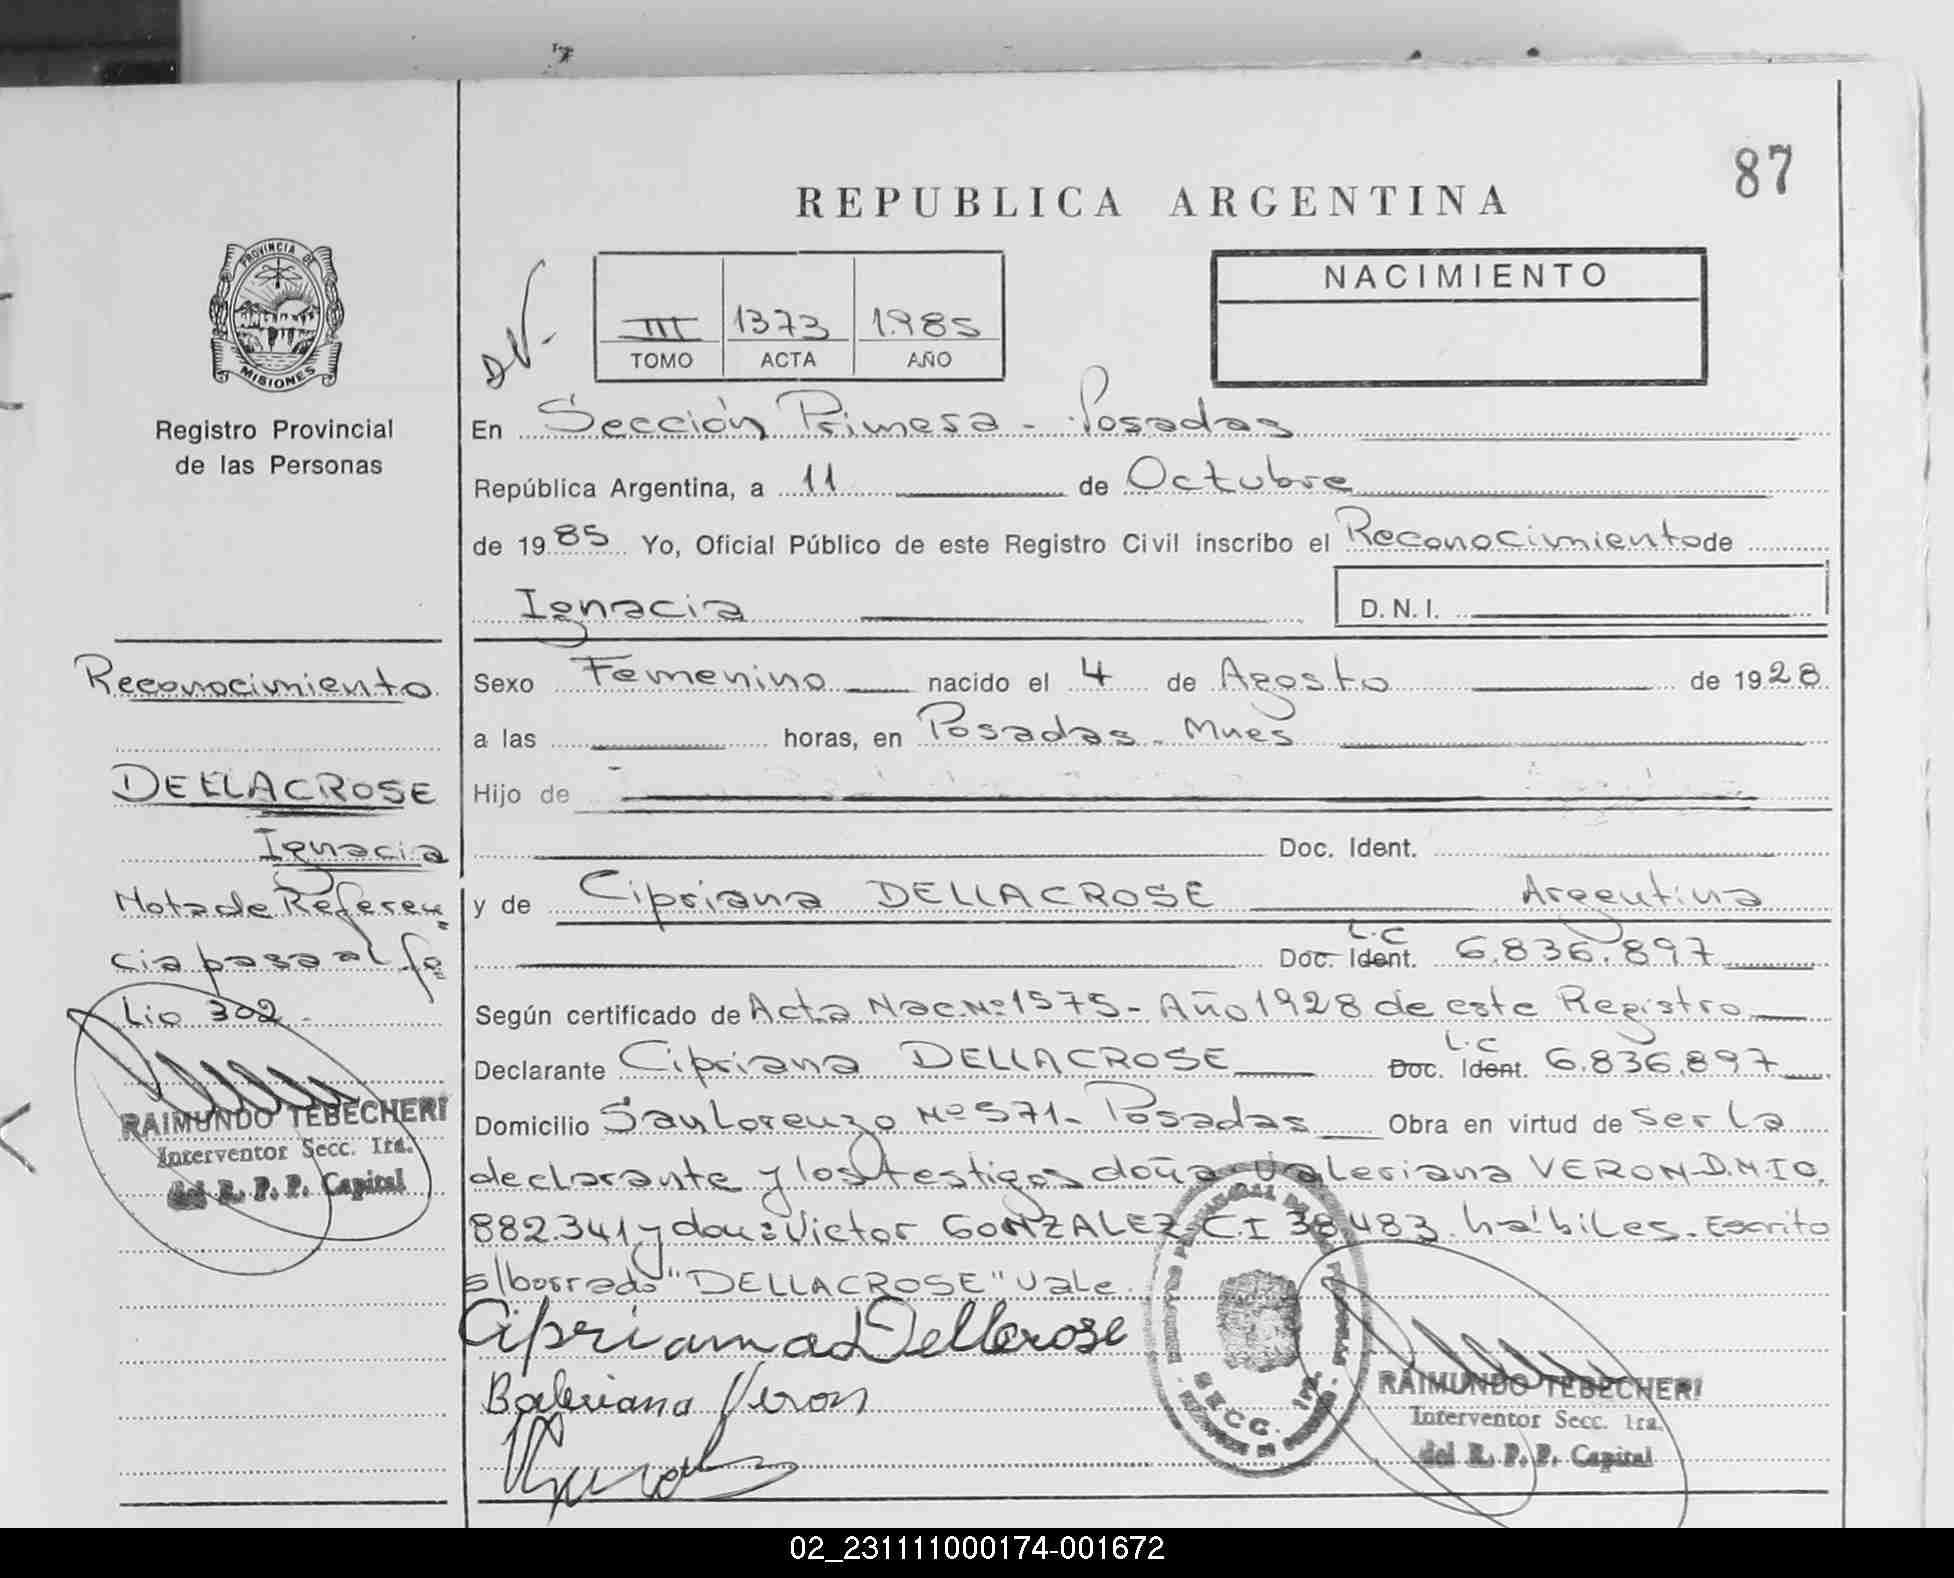 87
REPUBLICA ARGENTINA
PROVINCIA DE
MISIONES
Registro Provincial
de las Personas
III 1373 1985
TOMO ACTA AÑO
NACIMIENTO
En Sección Primera - Posadas
República Argentina, a 11 de Octubre
de 1985 Yo, Oficial Público de este Registro Civil inscribo el Reconocimiento de
Ignacia D.N.I.
Sexo Femenino nacido el 4 de Agosto de 1928
a las horas, en Posadas - Mnes
Hijo de
Doc. Ident.
y de Cipriana DELLACROSE Argentina
L.C
Doc. Ident. 6.836.897
Según certificado de Acta Nac. Nº 1575 - Año 1928 de este Registro
L.C
Declarante Cipriana DELLACROSE Doc. Ident. 6.836.897
Domicilio San Lorenzo Nº 571 - Posadas Obra en virtud de ser la
declarante y los testigos doña Valeriana VERON-D.N.I 0.
882.341 y don: Victor GONZALEZ C.I 38483 hábiles. Escrito
s/borrado "DELLACROSE" Vale.
Cipriana Dellacrose
Baleriana Veron
SECC. 1ra.
RAIMUNDO TEBECHERI
Interventor Secc. 1ra.
del R. P. P. Capital
Reconocimiento
DELLACROSE
Ignacia
Nota de Referen
cia pasa al fo
lio 302.
RAIMUNDO TEBECHERI
Interventor Secc. 1ra.
del R. P. P. Capital
02_231111000174-001672